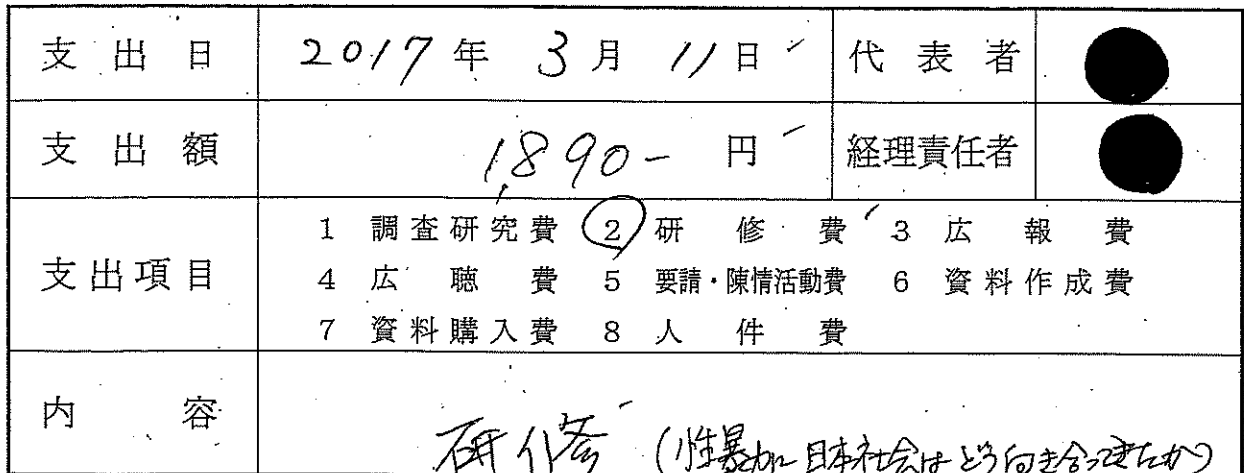 支出日 2017年 3月 11日 代表者
支出額 1890- 円 経理責任者
1 調査研究費 2 研修費 3 広報費
支出項目 4 広聴費 5 要請・陳情活動費 6 資料作成費
7 資料購入費 8 人件費
内容 研修 (性暴力に日本社会はどう向き合ってきたか)